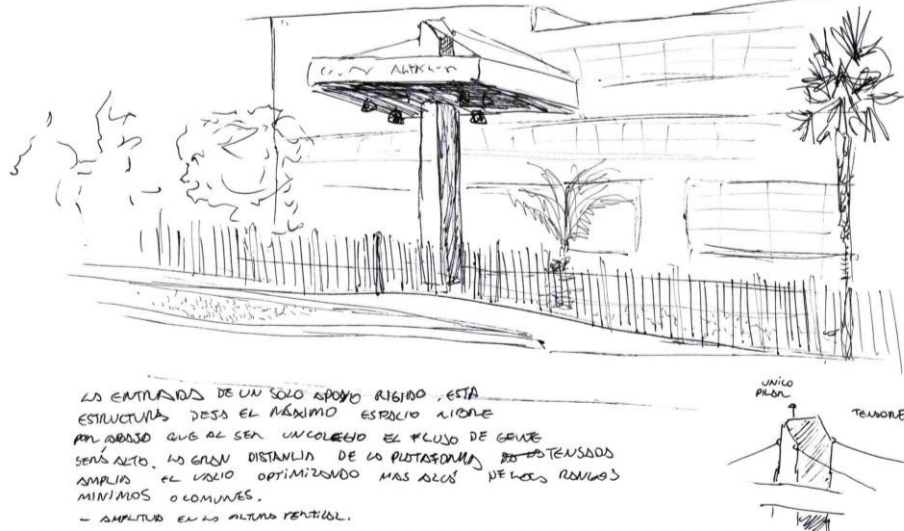 LA ENTRADA DE UN SOLO APOYO RIGIDO. ESTA
ESTRUCTURA DEJA EL MÁXIMO ESPACIO LIBRE
POR ABAJO QUE AL SER UN COLEGIO EL FLUJO DE GENTE
SERÁ ALTO. LA GRAN DISTANCIA DE LA PLATAFORMA TENSADA
AMPLIA EL VACIO OPTIMIZANDO MAS ALLÁ DE LOS RANGOS
MINIMOS O COMUNES.
- AMPLITUD EN LA ALTURA VERTICAL.
UNICO
PILAR
TENSORE